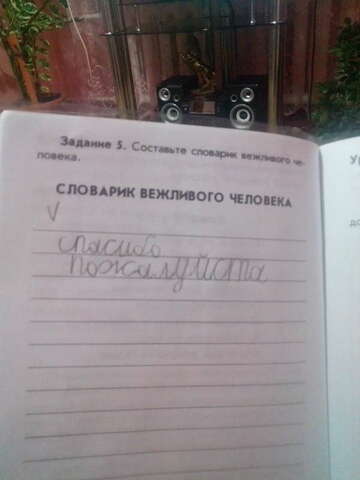 Задание 5. Составьте словарик вежливого че-
ловека.
СЛОВАРИК ВЕЖЛИВОГО ЧЕЛОВЕКА
спасибо
пожалуйста